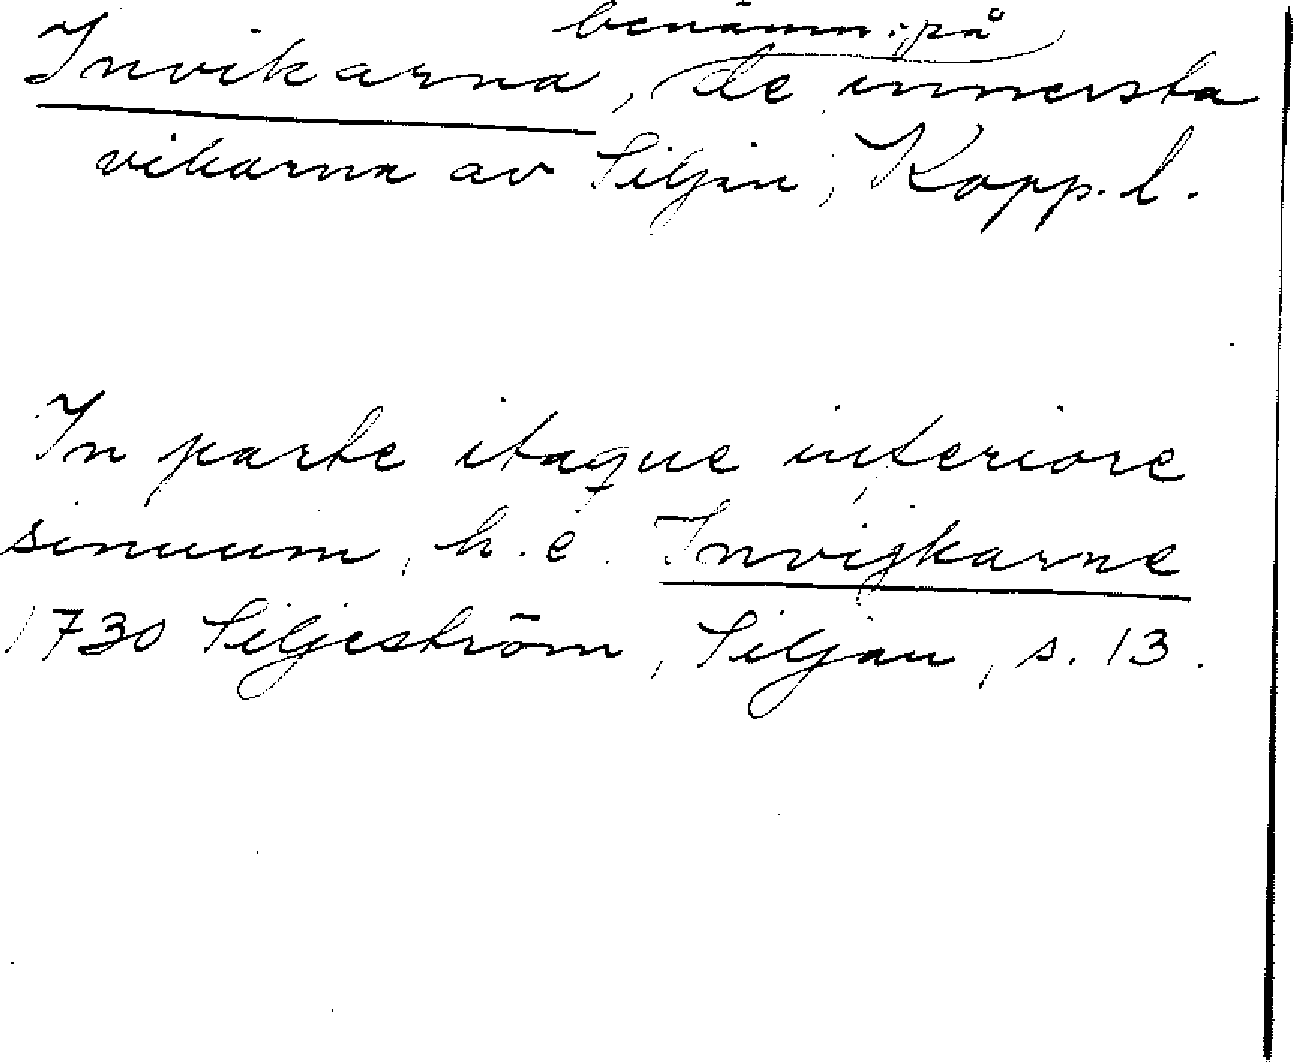 Invikarna, benämn. på de innersta
vikarna av Siljan, Kopp. l.
In parte itaque inferiore
sinuum, h. e. Invijkarne
1730 Siljeström, Siljan, s. 13.